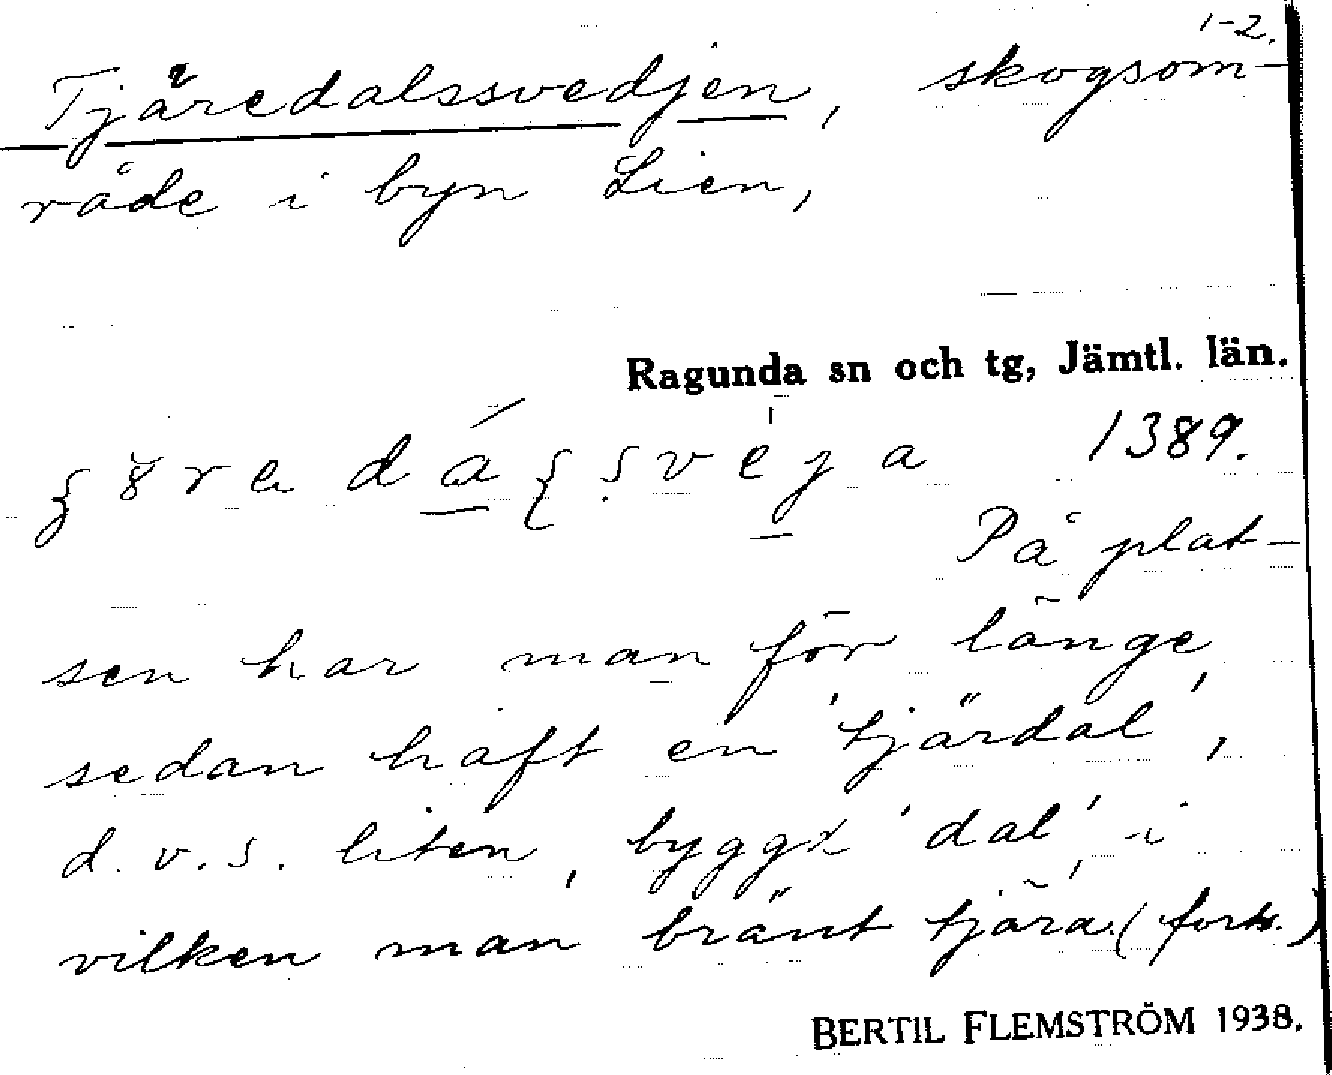 1-2.
Tjäredalssvedjen, skogsom-
råde i byn Lien,
Ragunda sn och tg, Jämtl. län.
1389.
På plat-
sen har man för länge
sedan haft en 'tjärdal',
d.v.s. liten, byggd 'dal', i
vilken man bränt tjära. (forts.)
BERTIL FLEMSTRÖM 1938.